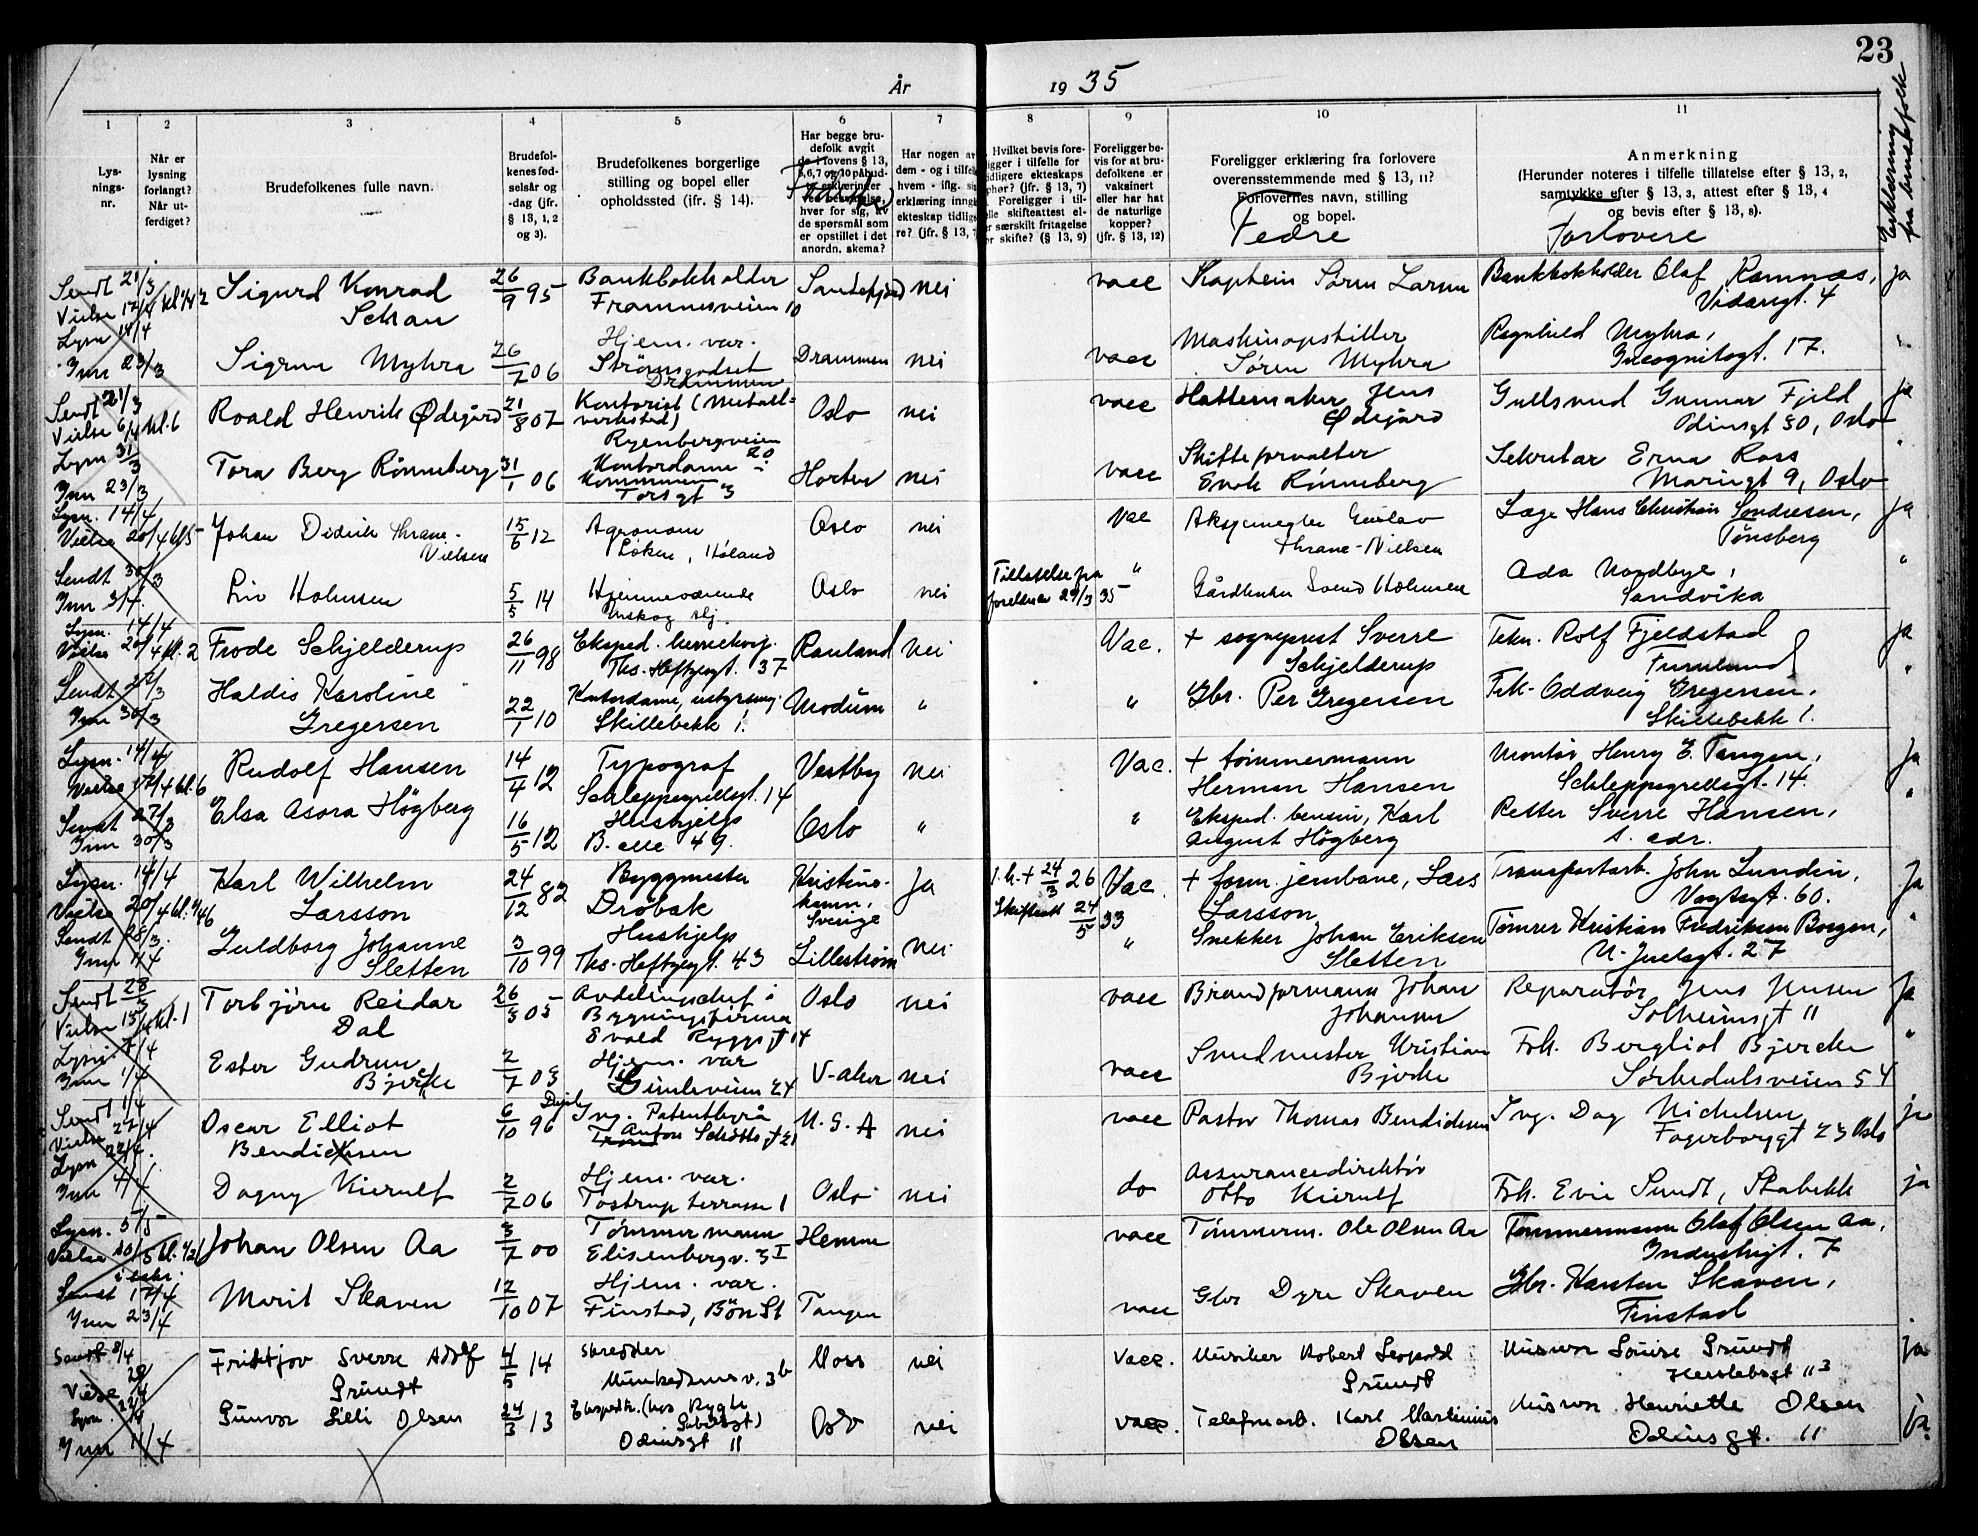 23
År 1935
Erklæring fra brudefolk
1 2 3 4 5 6 7 8 9 10 11
Lys-
nings-
nr.
Når er
lysning
forlangt?
Når ut-
ferdiget?
Brudefolkenes fulle navn.
Brudefol-
kenes fød-
selsår og
-dag (jfr.
§ 13, 1, 2
og 3).
Brudefolkenes borgerlige
stilling og bopel eller
opholdssted (ifr. § 14).
Har begge bru-
defolk avgit
de i lovens § 13,
5, 6, 7 og 10 påbud-
hver for sig, av
de spørsmål som
er opstillet i det
anordn. skema?
Har nogen av
dem - og i tilfelle
hvem - iflg. sin
erklæring inngått
ekteskap tidlige-
re? (jfr. § 13, 7)
Hvilket bevis fore-
ligger i tilfelle for
tidligere ekteskaps
ophør? (jfr. § 13, 7)
Foreligger i til-
felle skifteattest el-
ler særskilt fritagelse
for skifte? (§ 13, 9)
Foreligger be-
vis for at bru-
defolkene er
vaksinert
eller har hat
de naturlige
kopper?
(jfr. § 13, 12)
Foreligger erklæring fra forlovere
overensstemmende med § 13, 11?
Forlovernes navn, stilling
og bopel.
Fedre
Anmerkning
(Herunder noteres i tilfelle tillatelse efter § 13, 2,
samtykke efter § 13, 3, attest efter § 13, 4
og bevis efter § 13, 8).
Forlovere
Sendt 21/3 Sigurd Konrad 26/9 95 Bankbokholder nei vacc Kaptein Søren Larsen Bankbokholder Olaf Ramnæs, ja
Vielse 17/4 Framnesveien 10 Vidarsgt. 4
Lysn 14/4 Hjem. var. Maskinopstiller Ragnhild Myhra,
Inn 23/3 Sigrun Myhra 26/7 06 Strømsgodset Drammen nei vacc Søren Myhra Incognitogt. 17.
Drammen
Sendt 21/3 Roald Henrik Ødegård 21/8 07 Kontorist (Metall- Oslo nei vacc Hattemaker Jens Gullsmed Gunnar Fjeld ja
Vielse 6/4 kl. 6 verksted) Ødegård Odinsgt 30, Oslo
Lysn 31/3 Ryenbergveien 20 Skifteforvalter Sekretær Erna Ross
Inn 23/3 Tora Berg Rönneberg 31/1 06 Kontordame i Horten nei vacc Enok Rönneberg Mariusgt 9, Oslo
kommunen
Torsgt 3
Lysn. 14/4 Johan Didrik Thrane- 15/6 12 Agronom Oslo nei vac Aksjemegler Gustav Læge Hans Christian Sondresen, ja
Vielse 20/4 kl 5 Nielsen Løken, Höland Thrane-Nielsen Tönsberg
Sendt 30/3 Liv Holmsen 5/5 14 Hjemmeværende Oslo nei Tillatelse fra " Svend Holmsen Ada Nordbye, "
Inn 3/4. foreldrene 29/3 35 Sandvika
Lysn. 14/4 Frode Schjelderup 26/11 98 Rauland nei Vac. + sogneprest Sverre Tekn. Rolf Fjeldstad ja
Vielse 20/4 kl. 2 Ths. Heftyesgt. 37 Schjelderup
Sendt Haldis Karoline 22/1 10 Kontordame, Modum " " Gbr. Per Gregersen Frk. Oddveig Gregersen, "
Inn 30/3 Gregersen Skillebekk 1. Skillebekk 1.
Lysn. 14/4 Rudolf Hansen 14/4 12 Typograf Vestby nei Vac. + tömmermann Montör Henry E. Tangen, ja
Vielse 17/4 kl. 6 Schleppegrellsgt. 14 Herman Hansen Schleppegrellsgt. 14.
Sendt 27/3 Elsa Asora Högberg 16/5 12 Hushjelp Oslo " " Eksped. bensin, Karl Retter Sverre Hansen, "
Inn 30/3 B. alle 49. August Högberg s. adr.
Lysn. 14/4 Karl Wilhelm 24/12 82 Byggmester Kristine- ja 1. h. + 24/3 26 Vac. + form. jernbane, Lars Transportarb. John Lundin, ja
Vielse 20/4 Larsson Dröbak hamn, Skifteatt 24/5 33 Larsson Vogtsgt. 60.
Sendt 28/3. Guldborg Johanne 3/10 99 Hushjelp Sverige " Snekker Johan Eriksen Tömrer Kristian Fredriksen Borgen, "
Inn 1/4 Sletten Ths. Heftyesgt. 43 Lilleström nei Sletten N. Juelsgt. 27
Sendt 28/3 Torbjörn Reidar 26/3 05 Avdelingschef i Oslo nei vacc Brandformann Johan Reparatör Jens Jensen ja
Vielse 13/4 kl. 1 Dal Bygningsfirma Johansen Solheimsgt 11
Evald Ryggsgt 14
Lysn 7/4 Ester Gudrun 2/7 03 Hjem. var V-aker nei vacc Smedmester Kristian Frk. Bergliot Bjercke "
Inn 1/4 Bjerke Gimleveien 24 Bjerke Sörkedalsveien 54
Sendt 1/4 Oscar Elliot 6/10 96 Ing. Patentbyrå U. S. A nei vacc Pastor Thomas Bendicksen Ing. Dag Nickelsen ja
Vielse 22/4 Bendicksen Anton Schöttsgt 21 Fagerborggt 23 Oslo
Lysn 22/4. Hjem. var. Assurancedirektör
Inn 4/4. Dagny Kierulf 2/7 06 Tostrup terrasse 1 Oslo nei do Otto Kierulf Frk. Evie Sundt, Stabekk ja
Lysn. 5/5 Johan Olsen Aa 3/7 00 Tömmermann Hemne vacc Tömmerm. Ole Olsen Aa Tömmermann Olaf Olsen Aa,
Elisenbergv. 3 I Industrigt. 7
Sendt 17/4 Marit Skaven 12/10 07 Hjem. var. Tangen vacc Gbr Dyre Skaven Gbr. Karsten Skaven,
Inn 23/4 Finstad, Bön St Finstad
Sendt 8/4 Fridtjov Sverre Adolf 4/5 14 skredder Moss nei Vacc. Musiker Robert Leopold Louise Grundt ja
Vielse Grundt Munkedamsv. 3b Grundt Herslebsgt 11 3
Lysn. Gunvor Lilli Olsen 24/3 13 Oslo nei vacc. Telefonarb. Karl Martinius Henriette Olsen ja.
Inn 11/4 Odinsgt 11 Olsen Odinsgt. 11